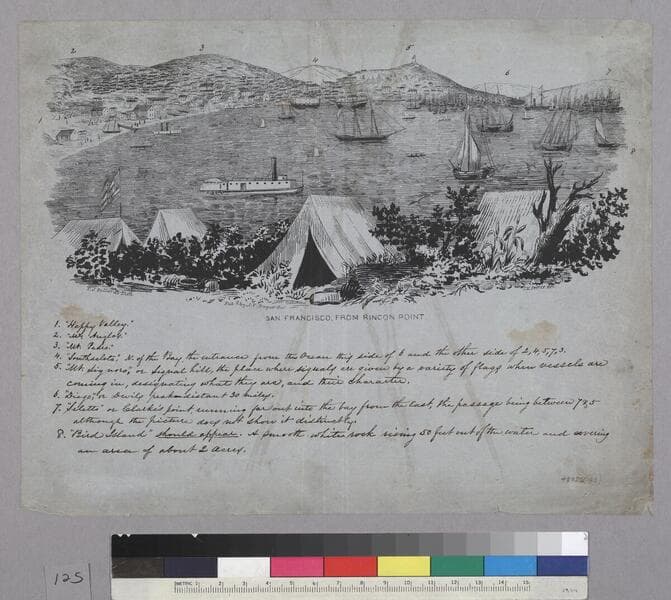 2
3
4
5
6
7
1
8
SAN FRANCISCO, FROM RINCON POINT
1. "Happy Valley."
2.
3.
4. N. of the Bay the entrance from the Ocean this side of 6 and the other side of 2, 4, 5, 7, 3.
5. or Signal hill, the place where signals are given by a variety of flags when vessels are
coming in, designating what they are, and their character.
6. distant 30 miles.
7. or Clark's point, running far out into the bay from the last, the passage being between 7 & 5
although the picture does not show it distinctly.
8. "Bird Island" should appear. A smooth white rock rising 50 feet out of the water and covering
an area of about 2 Acres.
125
METRIC 1 2 3 4 5 6 7 8 9 10 11 12 13 14 15